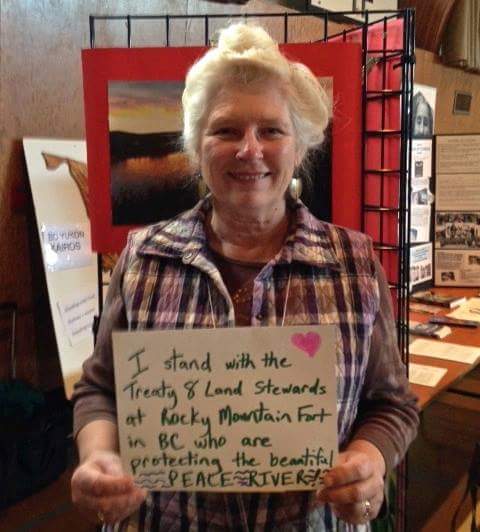 BC YUKON
KAIROS
I stand with the
Treaty 8 Land Stewards
at Rocky Mountain Fort
in BC who are
protecting the beautiful
PEACE RIVER